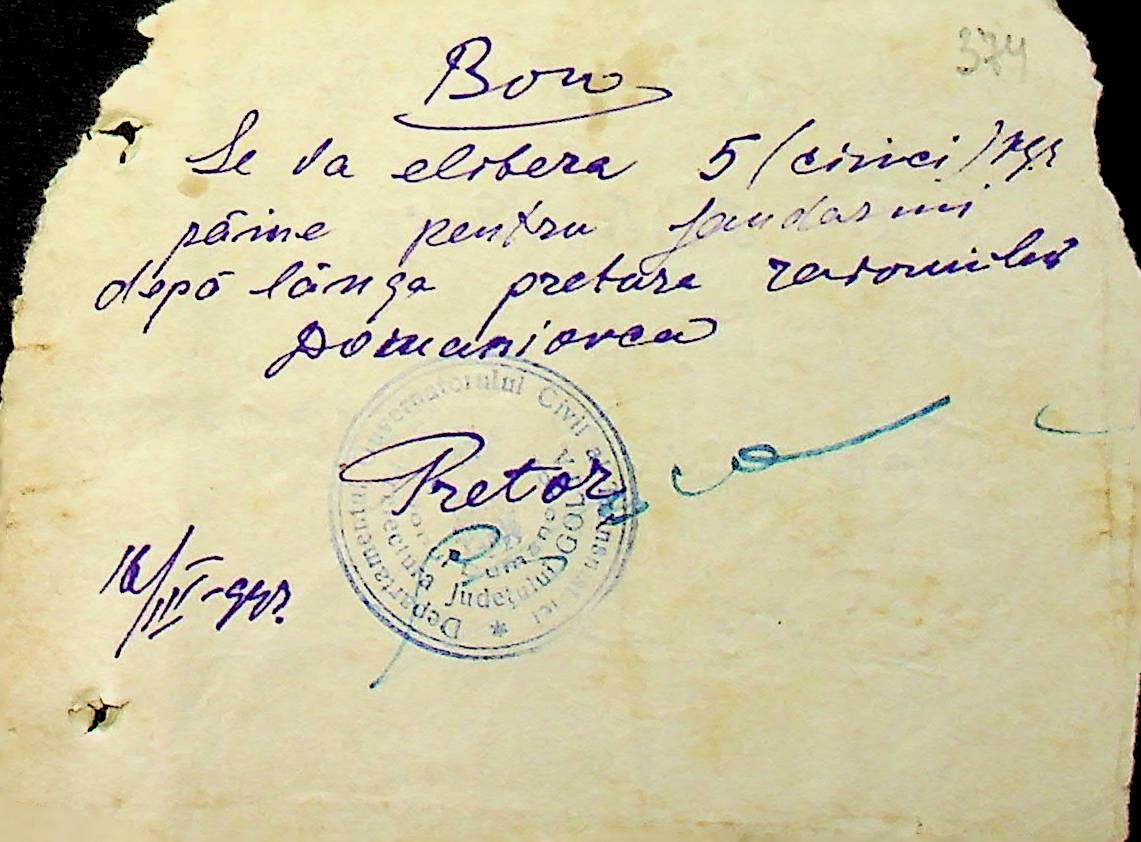 374
Bon
Se va elibera 5 (cinci) kgr
pâine pentru jandarmi
depă lânga pretura raionului
Domaniovca
Pretor
16/III-942
Departamentul Guvernatorului Civil al Transnistriei
Județului GOLTA